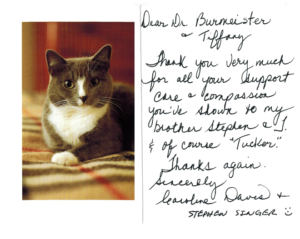 Dear Dr. Burmeister
& Tiffany
Thank you very much
for all your support
care & compassion
you've shown to my
brother Stephen & I.
& of course "Tucker."
Thanks again.
Sincerely
Caroline Davis &
STEPHEN SINGER